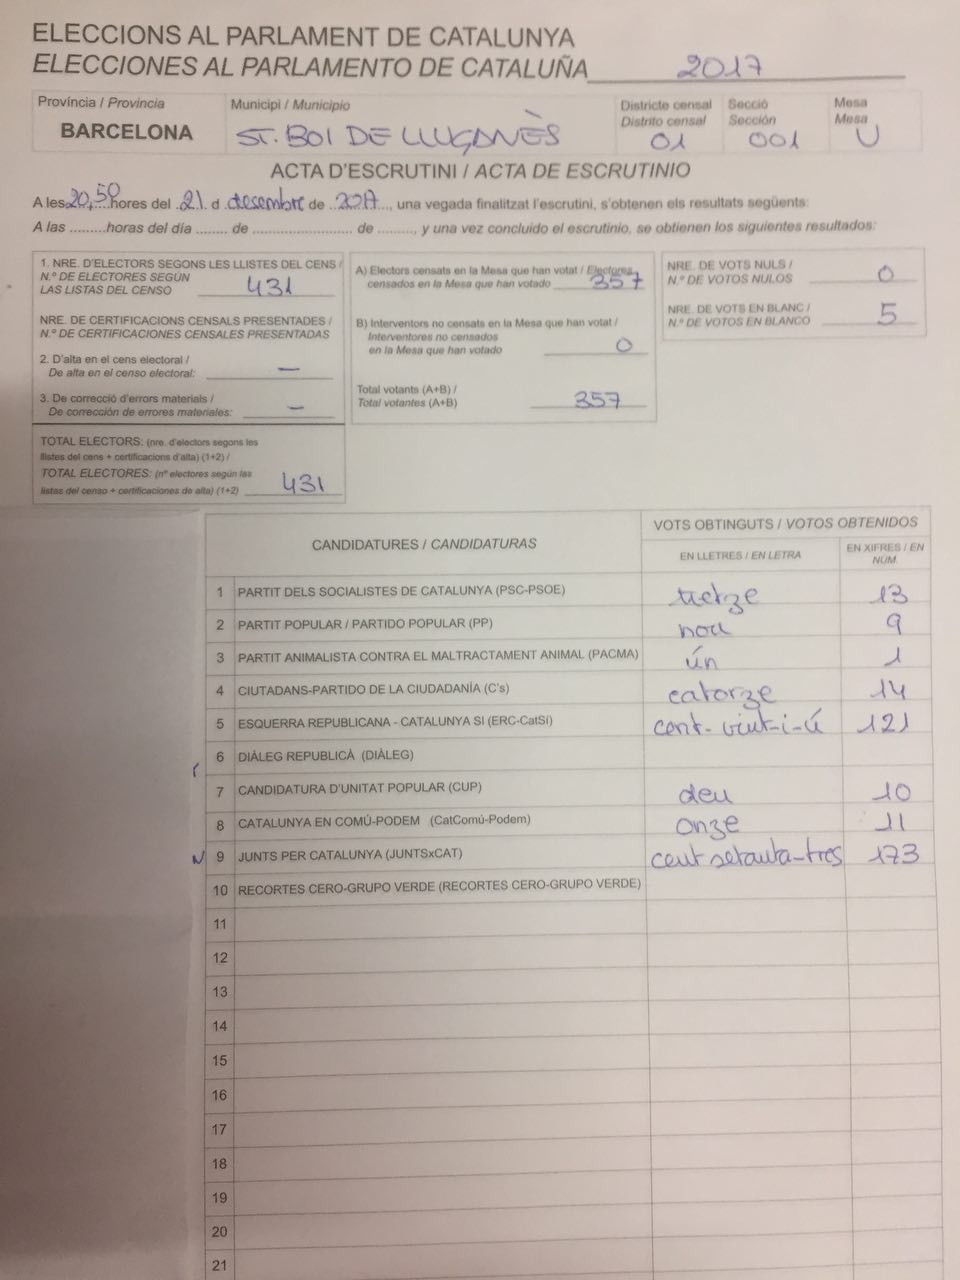 ELECCIONS AL PARLAMENT DE CATALUNYA
ELECCIONES AL PARLAMENTO DE CATALUÑA 2017
Província / Provincia
BARCELONA
Municipi / Municipio
ST. BOI DE LLUÇANÈS
Districte censal
Distrito censal
01
Secció
Sección
001
Mesa
Mesa
U
ACTA D'ESCRUTINI / ACTA DE ESCRUTINIO
A les 20,50 hores del 21 d desembre de 2017, una vegada finalitzat l'escrutini, s'obtenen els resultats següents:
A las ......... horas del día ........ de ......................... de ........., y una vez concluido el escrutinio, se obtienen los siguientes resultados:
1. NRE. D'ELECTORS SEGONS LES LLISTES DEL CENS /
N.º DE ELECTORES SEGÚN
LAS LISTAS DEL CENSO 431
NRE. DE CERTIFICACIONS CENSALS PRESENTADES /
N.º DE CERTIFICACIONES CENSALES PRESENTADAS
2. D'alta en el cens electoral /
De alta en el censo electoral: —
3. De correcció d'errors materials /
De corrección de errores materiales: —
TOTAL ELECTORS: (nre. d'electors segons les
llistes del cens + certificacions d'alta) (1+2) /
TOTAL ELECTORES: (nº electores según las
listas del censo + certificaciones de alta) (1+2) 431
A) Electors censats en la Mesa que han votat / Electores
censados en la Mesa que han votado 357
B) Interventors no censats en la Mesa que han votat /
Interventores no censados
en la Mesa que han votado 0
Total votants (A+B) /
Total votantes (A+B) 357
NRE. DE VOTS NULS /
N.º DE VOTOS NULOS 0
NRE. DE VOTS EN BLANC /
N.º DE VOTOS EN BLANCO 5
CANDIDATURES / CANDIDATURAS
VOTS OBTINGUTS / VOTOS OBTENIDOS
EN LLETRES / EN LETRA
EN XIFRES / EN
NÚM.
1 PARTIT DELS SOCIALISTES DE CATALUNYA (PSC-PSOE) tretze 13
2 PARTIT POPULAR / PARTIDO POPULAR (PP) nou 9
3 PARTIT ANIMALISTA CONTRA EL MALTRACTAMENT ANIMAL (PACMA) ún 1
4 CIUTADANS-PARTIDO DE LA CIUDADANÍA (C's) catorze 14
5 ESQUERRA REPUBLICANA - CATALUNYA SI (ERC-CatSI) cent-vint-i-ú 121
6 DIÀLEG REPUBLICÀ (DIÀLEG)
7 CANDIDATURA D'UNITAT POPULAR (CUP) deu 10
8 CATALUNYA EN COMÚ-PODEM (CatComú-Podem) onze 11
9 JUNTS PER CATALUNYA (JUNTSxCAT) cent setanta-tres 173
10 RECORTES CERO-GRUPO VERDE (RECORTES CERO-GRUPO VERDE)
11
12
13
14
15
16
17
18
19
20
21